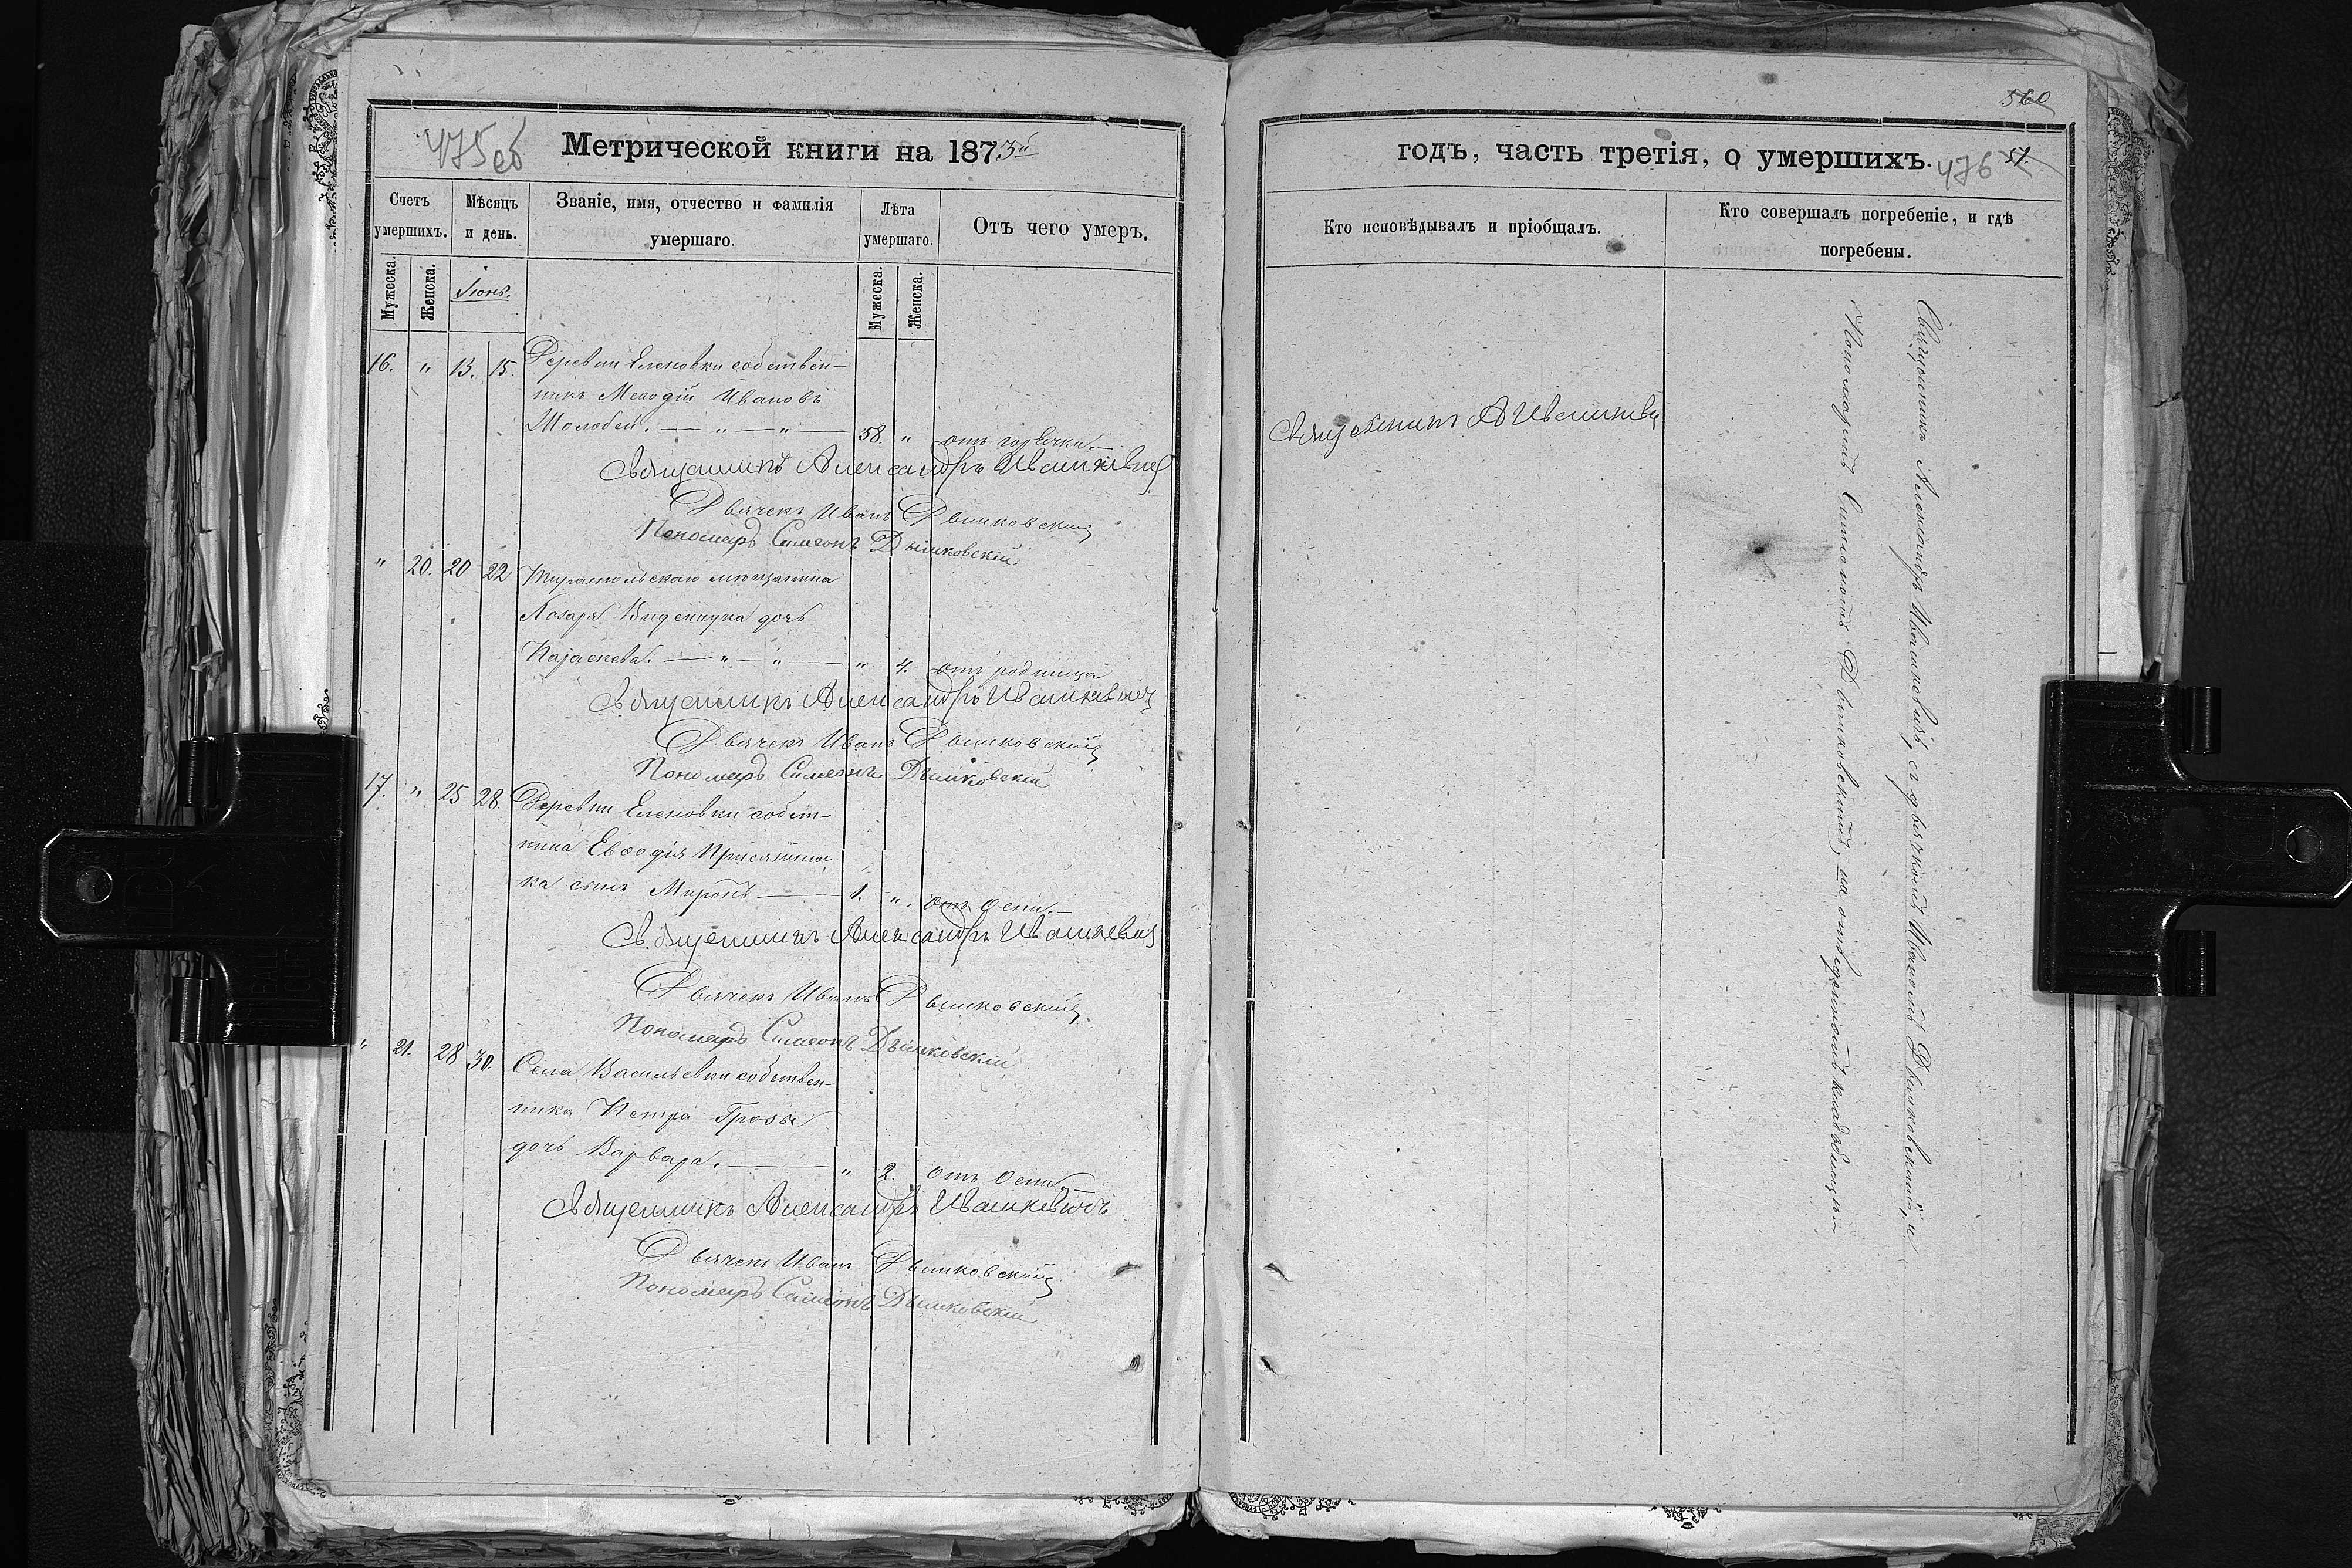 475об
Метрической книги на 1873й
Счетъ умершихъ.
Мѣсяцъ и день.
Званіе, имя, отчество и фамилія умершаго.
Лѣта умершаго.
Отъ чего умеръ.
Мужеска.
Женска.
Іюнь.
Мужеска.
Женска.
16. " 13. 15. Деревни Еленовки собствен-
никъ Меѳодій Ивановъ
Молобей. — " — " — 58. " отъ горячки.—
Священникъ Александръ Ивашкевичъ
Дьячекъ Иванъ Дышковский
Пономарь Симеонъ Дышковскій
" 20. 20 22 Тираспольскаго мѣщанина
Лазаря дочь
Параскева. — " — " — " 4. отъ родимца
Священникъ Александръ Ивашкевичъ
Дьячекъ Иванъ Дышковский
Пономарь Симеонъ Дышковскій
17. " 25 28 Деревни Еленовки собст-
ника Евѳодія
ка сынъ Миронъ — 1. ". отъ оспи.—
Священникъ Александръ Ивашкевичъ
Дьячекъ Иванъ Дышковский.
Пономарь Симеонъ Дышковскій
" 21. 28 30. Села Васильевки собствен-
ника Петра Грозы
дочь Варвара. — " 2. отъ оспи.—
Священникъ Александръ Ивашкевичъ
Дьячекъ Иванъ Дышковский
Пономарь Симеонъ Дышковскій
560
годъ, часть третія, о умершихъ.
476
51.
Кто исповѣдывалъ и пріобщалъ.
Кто совершалъ погребеніе, и гдѣ погребены.
Священникъ А Ивашкевичъ
Священникъ Александръ Ивашкевичъ, съ дьячкомъ Иваномъ Дышковскимъ, и
Пономаремъ Симеономъ Дышковскимъ, на отведенномъ кладбищѣ.—